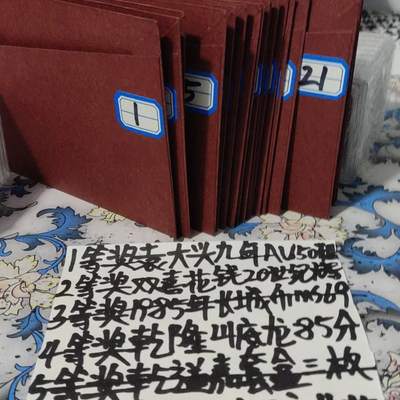 1
5
21
1等奖袁大头九年AU50
2等奖双喜花钱20
3等奖1985年长城币ms69
4等奖乾隆山底龙85分
5等奖乾 嘉套 三枚